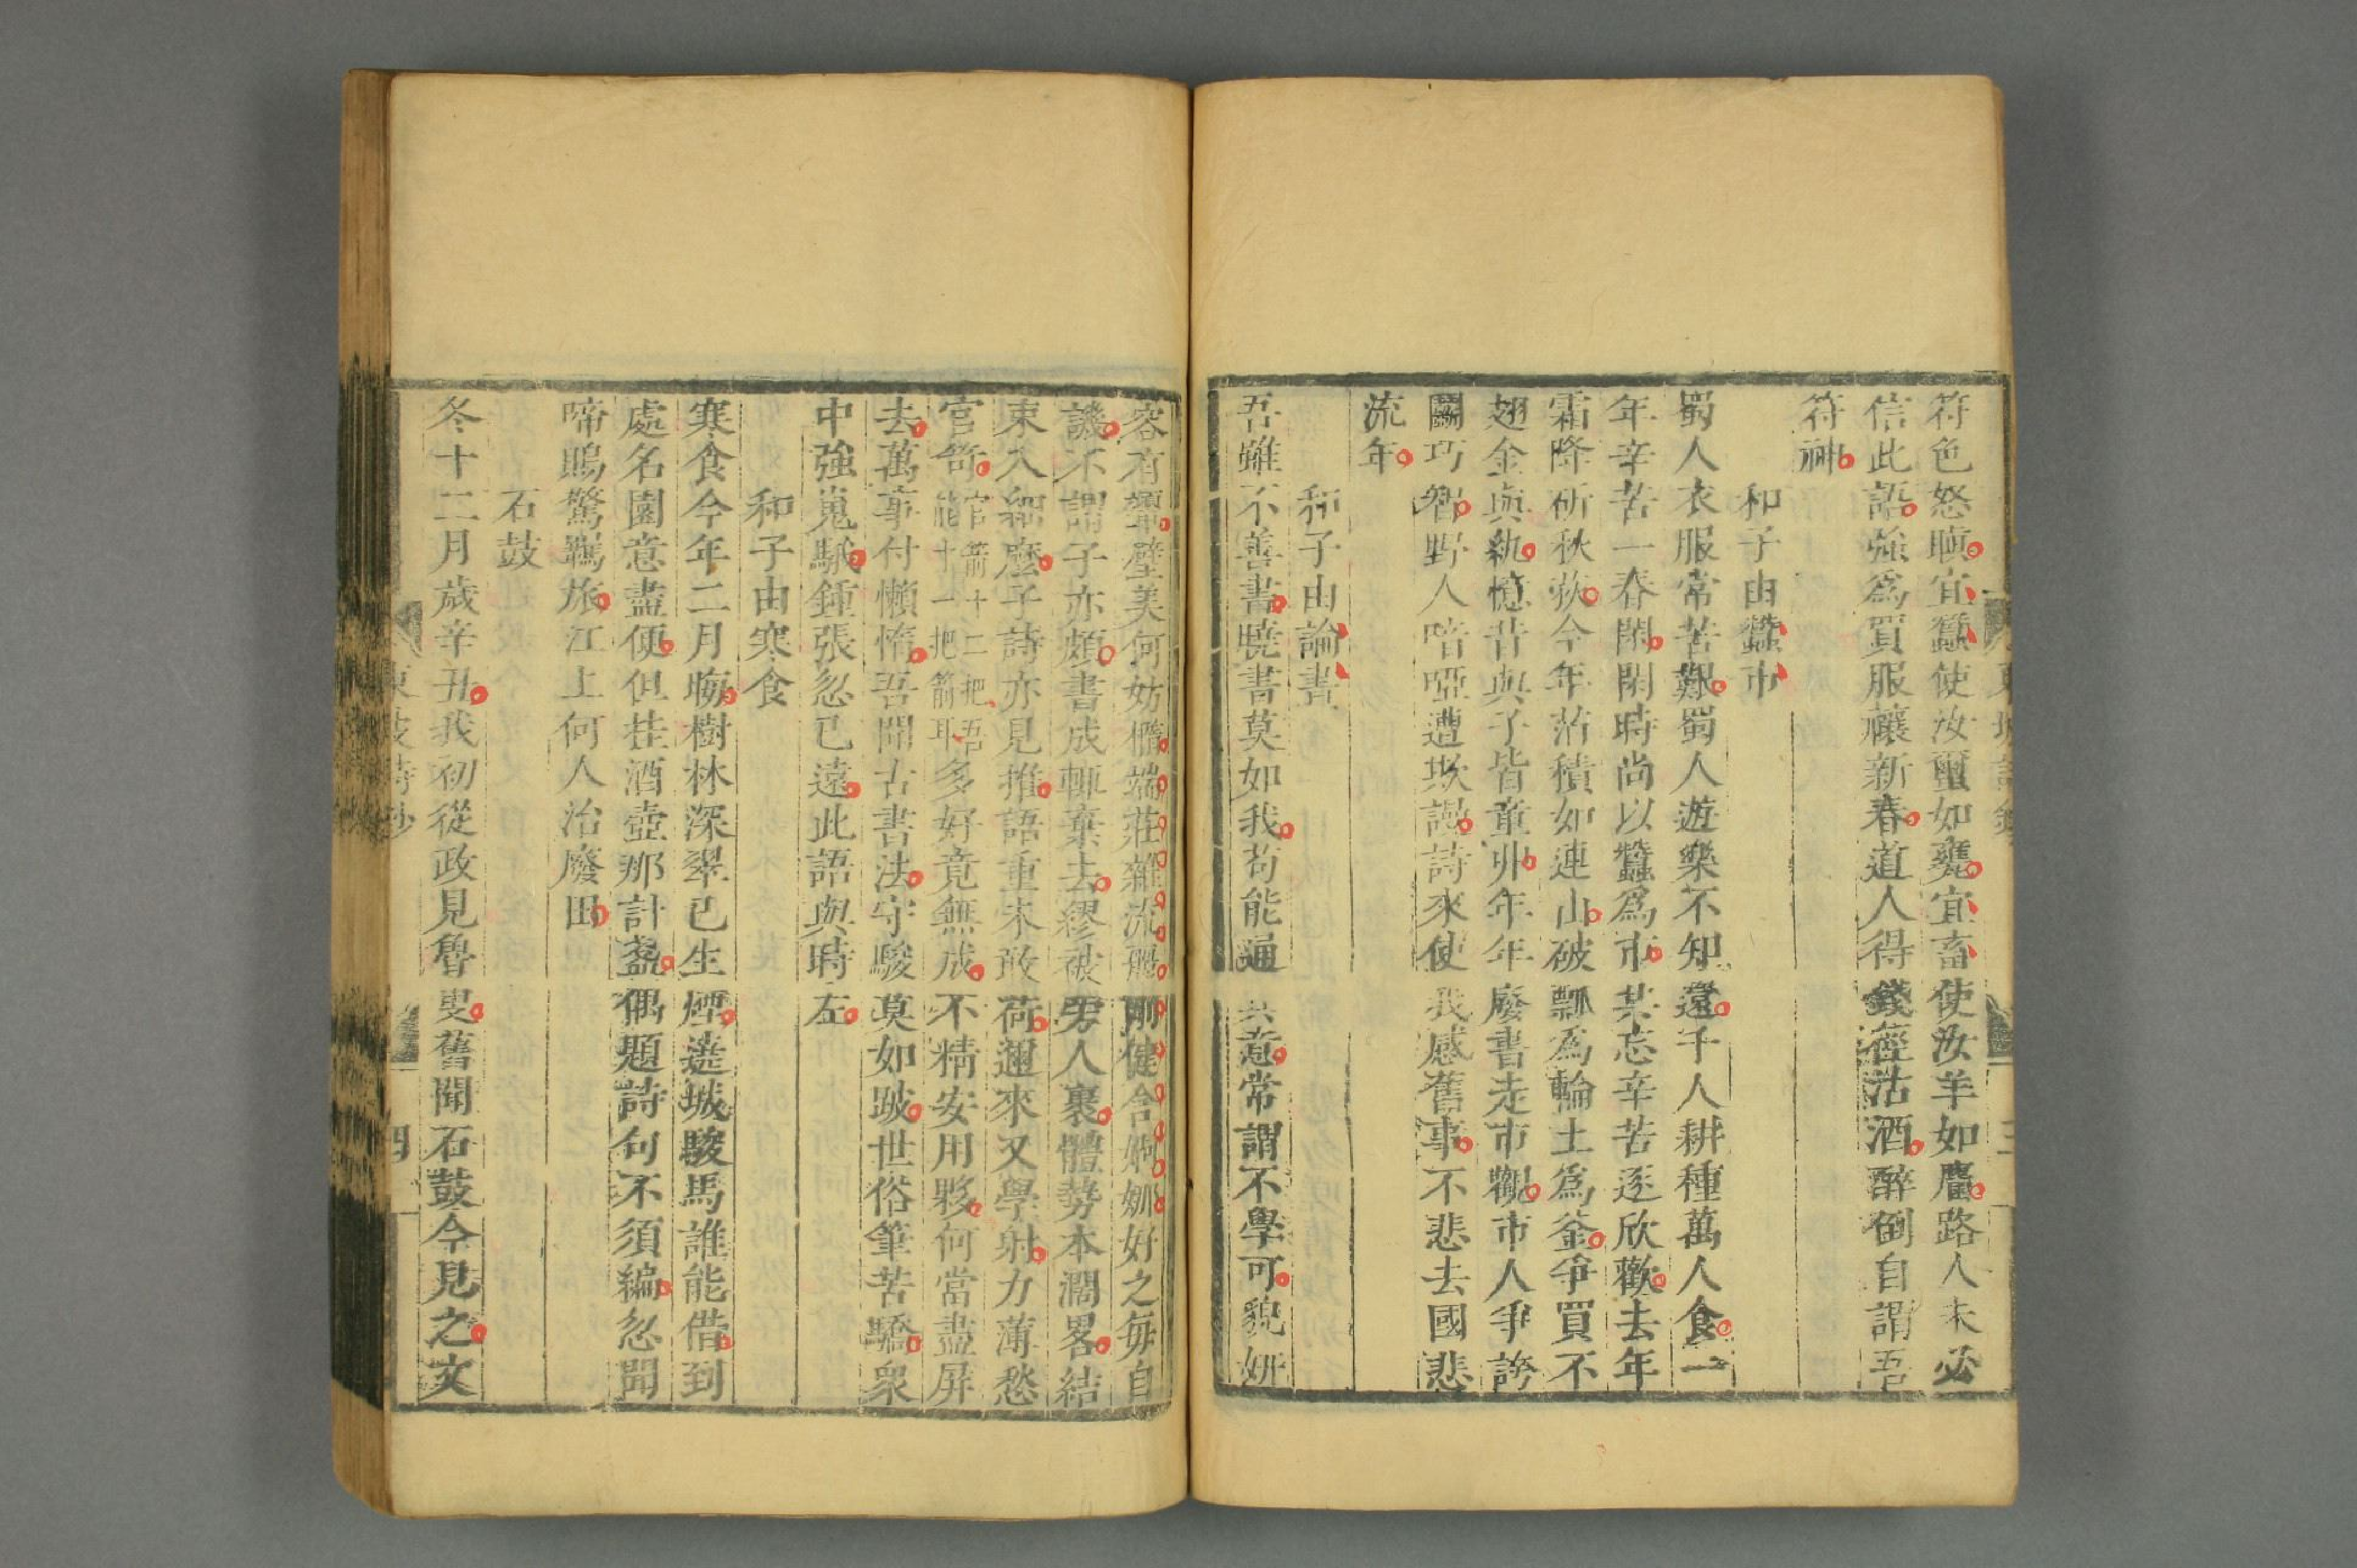 符色怒瞋宜蠶使汝璽如甕宜畜使汝羊如麕路人未必
信此語強爲買服禳新春道人得錢徑沽酒醉倒自謂吾
符神
和子由蠶市
蜀人衣服常苦艱蜀人遊樂不知還千人耕種萬人食一
年辛苦一春閑閑時尚以蠶爲市共忘辛苦逐欣歡去年
霜降斫秋荻今年箔積如連山破瓢爲輪土爲釜爭買不
翅金與紈憶昔與子皆童丱年年廢書走市觀市人爭誇
鬬巧智野人喑啞遭欺謾詩來使我感舊事不悲去國悲
流年
和子由論書
吾雖不善書曉書莫如我苟能通其意常謂不學可貌妍
容有顰璧美何妨橢端莊雜流麗剛健含婀娜好之每自
譏不謂子亦頗書成輒棄去繆被旁人裹體勢本濶畧結
束入細麼子詩亦見推語重未敢荷邇來又學射力薄愁
官笴官箭十二把吾能十一把箭耳多好竟無成不精安用夥何當盡屏
去萬事付懶惰吾聞古書法守駿莫如跛世俗筆苦驕衆
中強嵬騀鍾張忽已遠此語與時左
和子由寒食
寒食今年二月晦樹林深翠已生煙遶城駿馬誰能借到
處名園意盡便但挂酒壺那計盞偶題詩句不須編忽聞
啼鵙驚羈旅江上何人治廢田
石鼓
冬十二月歲辛丑我初從政見魯叟舊聞石鼓今見之文
東坡詩鈔
四